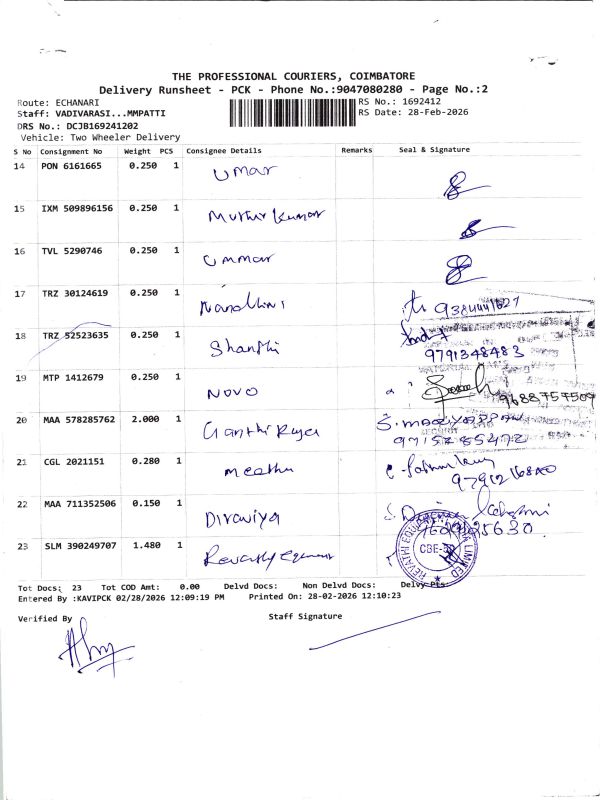 THE PROFESSIONAL COURIERS, COIMBATORE
Delivery Runsheet - PCK - Phone No.:9047080280 - Page No.:2
Route: ECHANARI RS No.: 1692412
Staff: VADIVARASI...MMPATTI RS Date: 28-Feb-2026
DRS No.: DCJB169241202
Vehicle: Two Wheeler Delivery
S No Consignment No Weight PCS Consignee Details Remarks Seal & Signature
14 PON 6161665 0.250 1 Umar
15 IXM 509896156 0.250 1 Muthu Kumar
16 TVL 5290746 0.250 1 Ummar
17 TRZ 30124619 0.250 1 Nandhini 9384441627
18 TRZ 52523635 0.250 1 Shanthi 9791348483
19 MTP 1412679 0.250 1 NOVO 9688757509
20 MAA 578285762 2.000 1 S.MARIYAPPAN
9715785472
21 CGL 2021151 0.280 1
22 MAA 711352506 0.150 1 Diraviya
23 SLM 390249707 1.480 1 CBE-
Tot Docs: 23 Tot COD Amt: 0.00 Delvd Docs: Non Delvd Docs: Delvy Pts
Entered By :KAVIPCK 02/28/2026 12:09:19 PM Printed On: 28-02-2026 12:10:23
Verified By Staff Signature